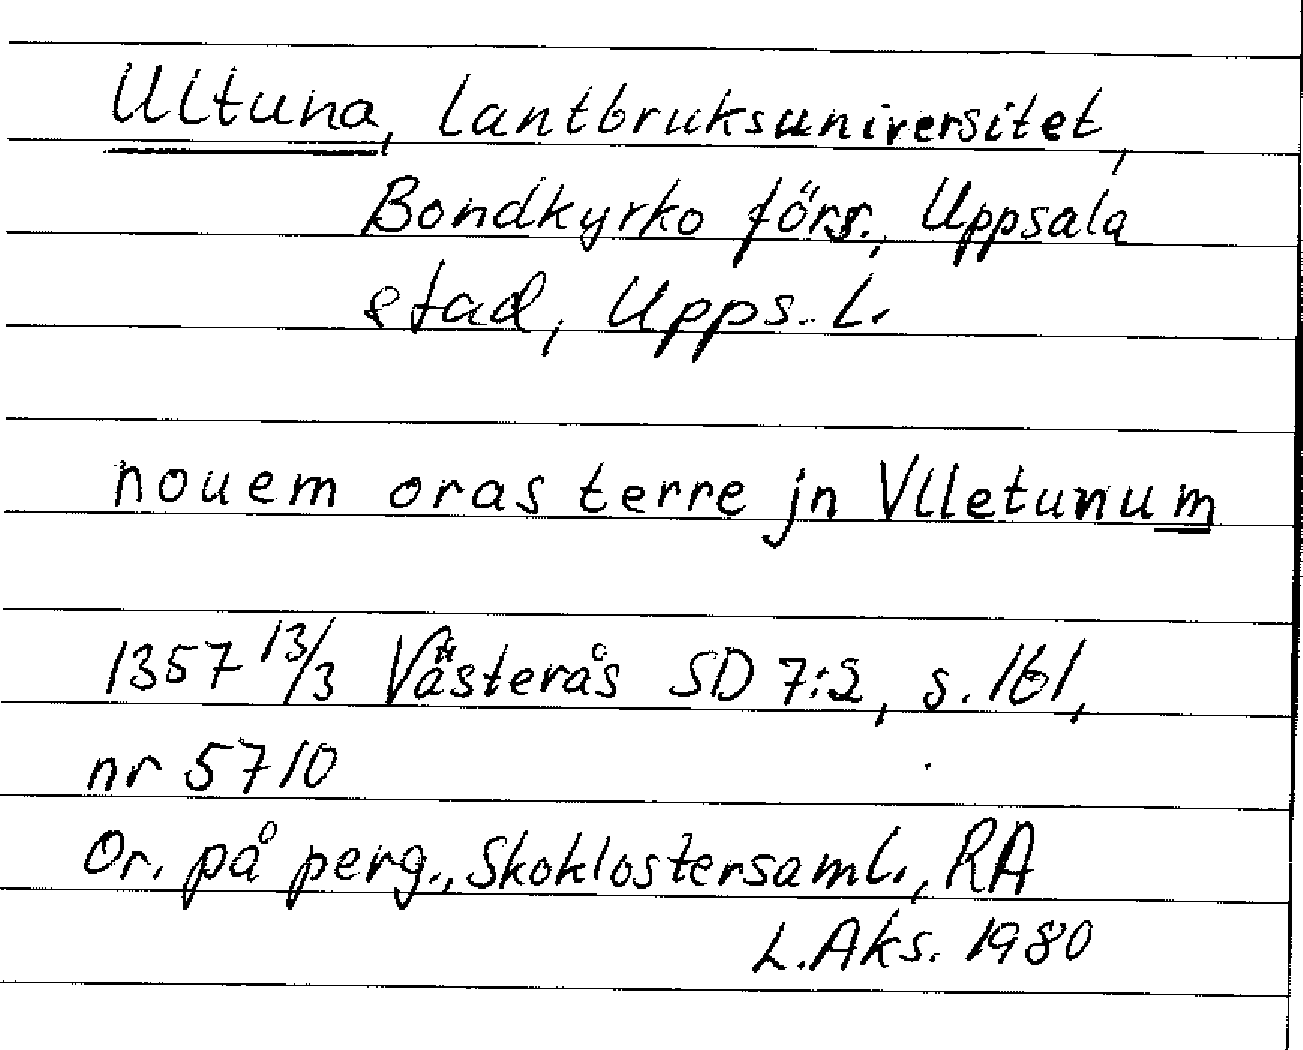 Ultuna, Lantbruksuniversitet,
Bondkyrko förs., Uppsala
stad, Upps. L.
nouem oras terre jn Vlletunum
1357 13/3 Västerås SD 7:2, s. 161,
nr 5710
Or. på perg., Skoklostersaml., RA
L. Aks. 1980